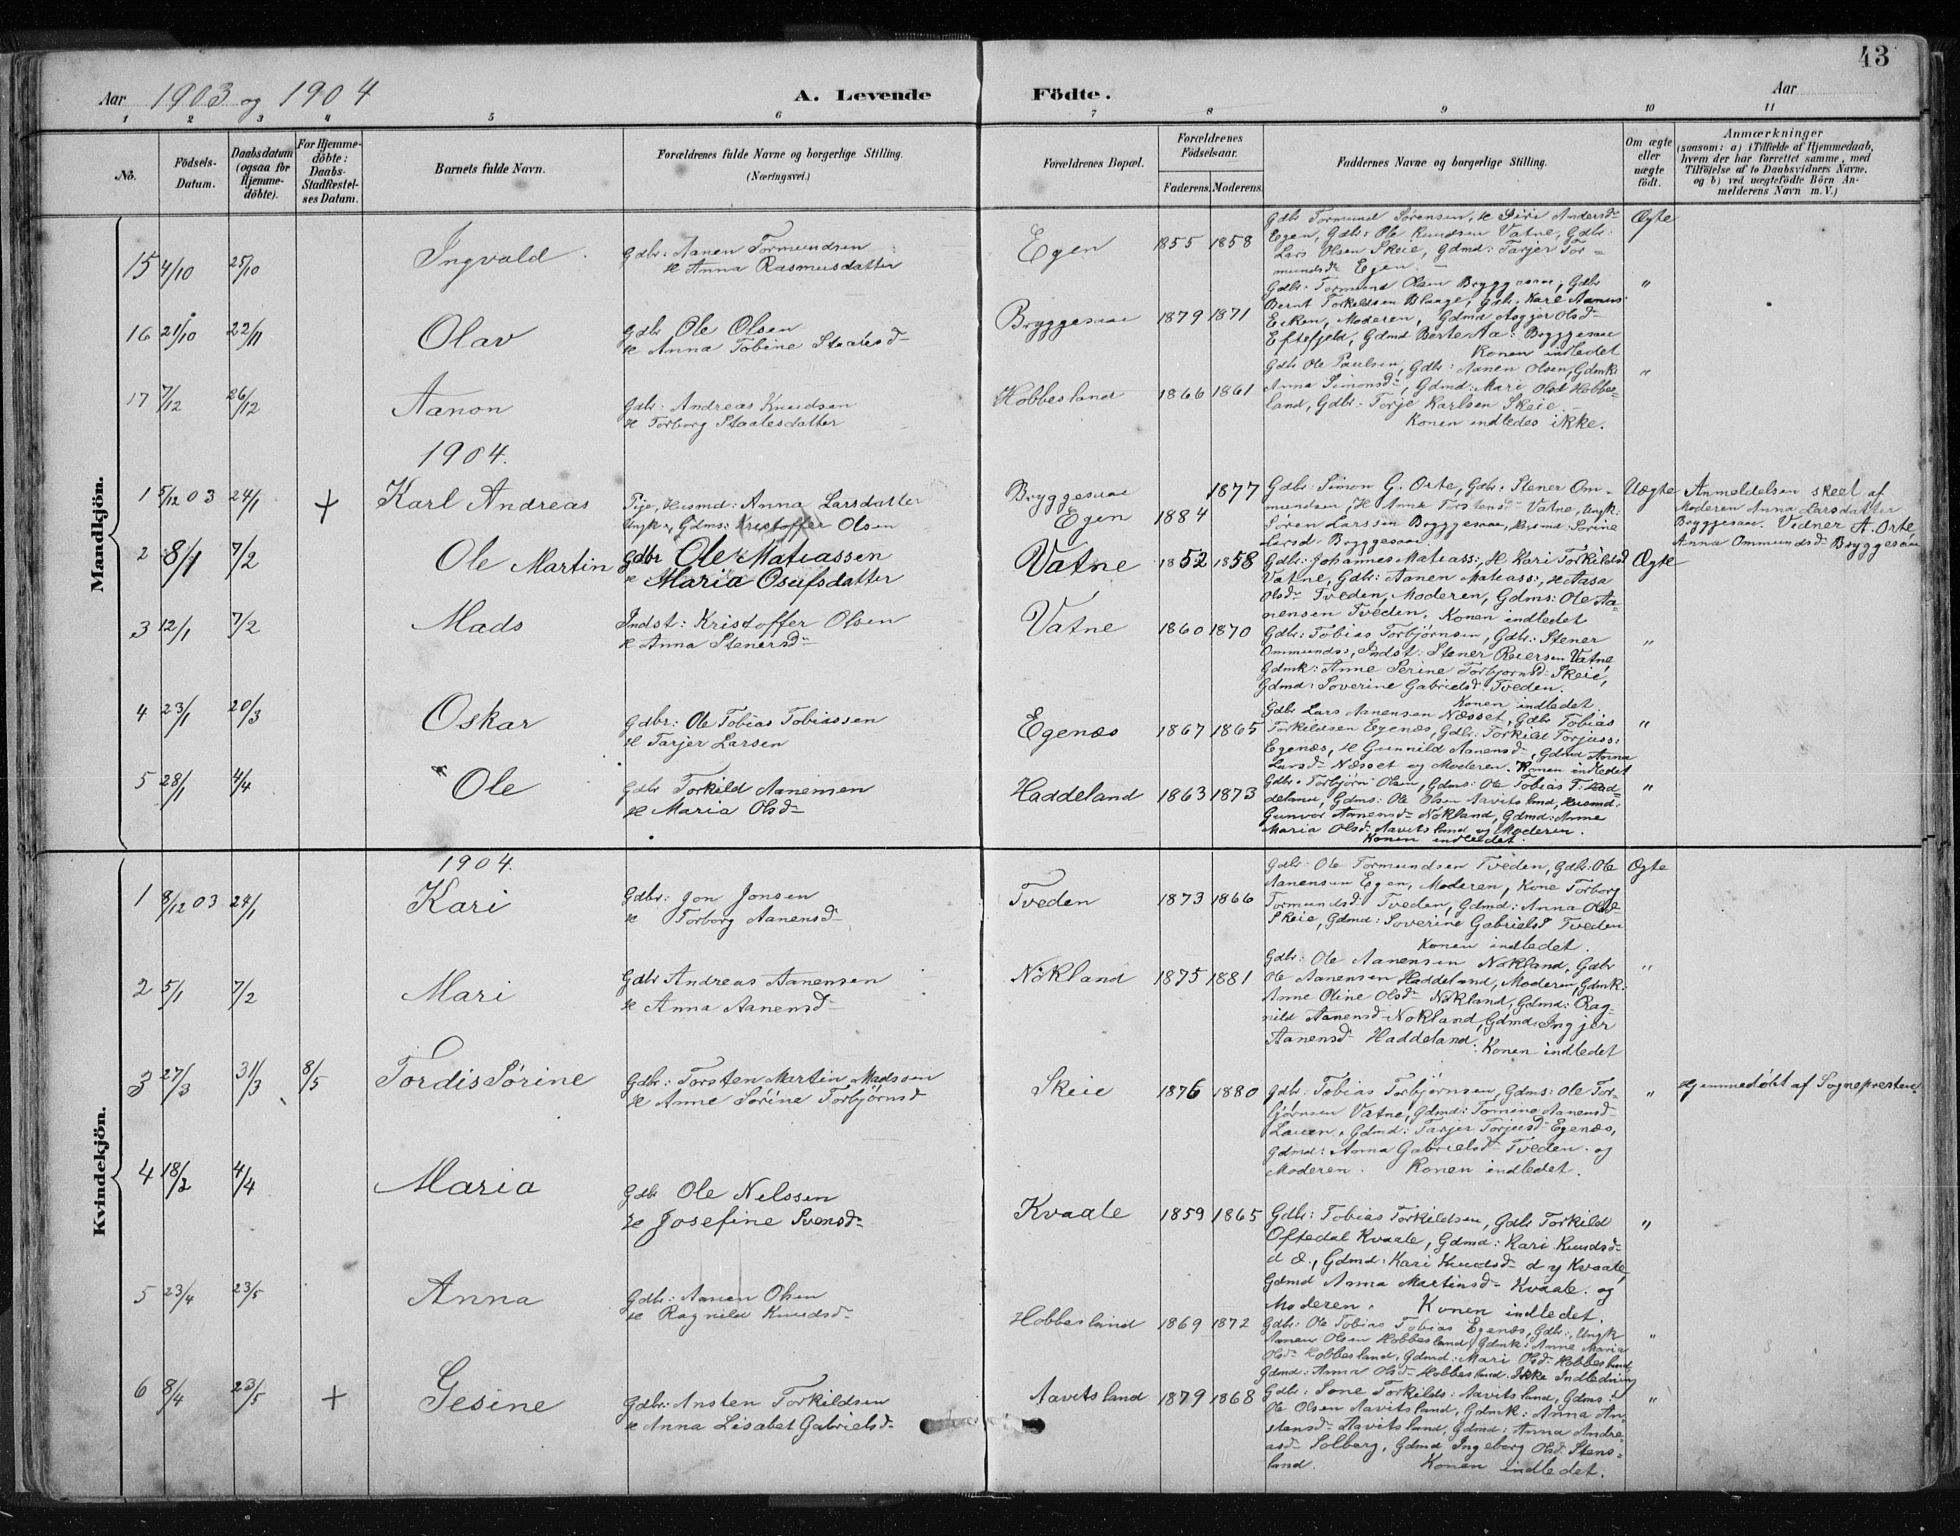 43
Aar 1903 og 1904
A. Levende
Födte.
Aar
1 2 3 4 5 6 7 8 9 10 11
No.
Födsels-
Datum.
Daabsdatum
(ogsaa for
Hjemme-
döbte).
For Hjemme-
döbte:
Daabs-
Stadfæstel-
ses Datum.
Barnets fulde Navn.
Forældrenes fulde Navne og borgerlige Stilling.
(Næringsvei.)
Forældrenes Bopæl.
Forældrenes
Födselsaar.
Faderens. Moderens.
Faddernes Navne og borgerlige Stilling.
Om ægte
eller
uægte
födt.
Anmærkninger
(saasom: a) i Tilfælde af Hjemmedaab,
hvem der har forrettet samme, med
Tilföielse af to Daabsvidners Navne,
og b) ved uægtefödte Börn An-
melderens Navn m. V.)
Mandkjön.
15 4/10 25/10 Ingvald
Gdbr: Aanen Tormundsen
H Anna Rasmusdatter
Egen 1855 1858
Gdbr Tormund Sørensen, H Siri Andersd-
Egen, Gdbr: Ole Knudsen Vatne, Gdbr:
Lars Olsen Skeie, Gdmd: Tarjer Tor-
mundsd- Egen.
Ægte
16 21/10 22/11 Olav
Gdbr Ole Olsen
H Anna Tobine Staalesd-
Bryggesaae 1879 1871
Gdbr: Tormund Olsen Bryggesaae, Gdbr
Bernt Torkildsen Blaage, Gdbr. Karl Aanus-
Eeken, Moderen, Gdmd Asgjer Olsd-
Eftefjeld, Gdmd Berte Aa: Bryggesaae
Konen indledet
"
17 7/12 26/12 Aanon
Gdbr: Andreas Knudsen
H Torborg Staalesdatter
Hobbesland 1866 1861
Gdbr Ole Paulsen, Gdbr: Aanen Olsen, Gdmk:
Anna Simonsd-, Gdmd: Mari Olsd Hobbes-
land, Gdbr- Torje Karlsen Skeie.
Konen indledes ikke.
"
1904.
1 5/12 03 24/1 + Karl Andreas
Pige, Husmd: Anna Larsdatter
Ungkar, Gdms: Kristoffer Olsen
Bryggesaae 1877
Egen 1884
Gdbr: Simon G. Orte, Gdbr: Stener Om-
mundsen, H Anne Torstensd- Vatne, Ungk:
Søren Larssen Bryggesaae, Husmd: Serine
Larsd- Bryggesaae
Uægte
Anmeldelsen skeet af
Moderen Anna Larsdatter
Bryggesaae. Vidner A. Orte
Anna Ommundsd- Bryggesaae
2 8/1 7/2 Ole Martin
Gdbr Ole Matiassen
H Maria Osufsdatter
Vatne 1852 1858
Gdbr: Johannes Mateass:, H Kari Torkildsd
Vatne, Gdbr: Aanen Mateass:, H Aasa
Olsd- Tveden, Moderen, Gdms: Ole Aa-
nensen Tveden. Konen indledet
Ægte
3 12/1 7/2 Mads
Indst: Kristoffer Olsen
H Anna Stenersd-
Vatne 1860 1870
Gdbr: Tobias Torbjørnsen, Gdbr: Stener
Ommundss, Indst: Stener Reiersen Vatne,
Gdmk: Anne Serine Torbjornsd- Skeie,
Gdmd: Soverine Gabrielsd- Tveden.
Konen indledet.
"
4 23/1 20/3 Oskar
Gdbr: Ole Tobias Tobiassen
H Tarjer Larsen
Egenæs 1867 1865
Gdbr Lars Aanensen Næsset, Gdbr Tobias
Torkildsen Egenæs, Gdbr: Torkild Torjuss:
Egenæs, H Gunnild Aanensd-, Gdmd Anna
Larsd- Næsset og Moderen. Konen indledet
"
5 28/1 4/4 Ole
Gdbr Torkild Aanensen
H Maria Olsd-
Haddeland 1863 1873
Gdbr. Torbjörn Olsen, Gdms: Ole Tobias T. Had-
deland, Gdms: Ole Olsen Aavitsland, Husmd.
Gunvor Aanensd- Nökland, Gdmd: Anne
Maria Olsd- Aavitsland og Moderen.
Konen indledet.
"
Kvindekjön.
1904.
1 8/12 03 24/1 Kari
Gdbr: Jon Jonsen
H Torborg Aanensd-
Tveden 1873 1866
Gdbr- Ole Tormundsen Tveden, Gdbr: Ole
Aanensen Egen, Moderen, Kone Torborg
Tormundsd- Tveden, Gdmd: Anna Olsd-
Skeie, Gdmd: Soverine Gabrielsd Tveden
Konen indledet.
Ægte
2 5/1 7/2 Mari
Gdbr Andreas Aanensen
H Anna Aanensd-
Nökland 1875 1881
Gdbr: Ole Aanensen Nökland, Gdbr
Ole Aanensen Haddeland, Moderen, Gdmk:
Anne Oline Olsd- Nökland, Gdmd: Rag-
nild Aanensd- Nökland, Gdmd: Ingjer
Aanensd- Haddeland. Konen indledet
"
3 27/3 31/3 8/5 Tordis Sörine
Gdbr: Torsten Martin Madssen
H Anne Sörine Torbjörnsd
Skeie 1876 1880
Gdbr: Tobias Torbjørnsen, Gdms: Ole Tor-
bjørnsen Vatne, Gdmd: Tomine Aanensd-
Lauen, Gdmd: Tarjer Torjusd- Egenæs,
Gdmd: Anna Gabrielsd- Tveden. og
Moderen. Konen indledet.
"
Hjemmedöbt af Sognepresten.
4 18/2 4/4 Maria
Gdbr Ole Nelssen
H Josefine Svensd-
Kvaale 1859 1865
Gdbr: Tobias Torkildsen, Gdbr Torkild
Oftedal Kvaale, Gdmd: Kari Knudsd-
d æ., Gdmd: Kari Knudsd- d y Kvaale,
Gdmd Anna Martinsd- Kvaale. og
Moderen. Konen indledet.
"
5 23/4 23/5 Anna
Gdbr: Aanen Olsen
H Ragnild Knudsd-
Hobbesland 1869 1872
Gdbr: Ole Tobias Tobias Egenæs, Gdbr:, Ungk
Aanen Olsen Hobbesland, Gdmk: Anne Maria
Olsd- Hobbesland, Gdmd: Mari Olsd- Hobbesland,
Gdmd: Anna Olsd- Hobbesland. Ikke Indledning
"
6 8/4 23/5 + Gesine
Gdbr: Ansten Torkildsen
H Anna Lisabet Gabrielsd-
Aavitsland 1879 1868
Gdbr: Sone Torkilds: Aavitsland, Gdms:
Ole Olsen Aavitsland, Gdmk: Anna An-
stensd- Aavitsland, Gdmd: Anna Andre-
asd- Solberg, Gdmd Ingeberg Olsd. Stens-
land. Konen indledet.
"